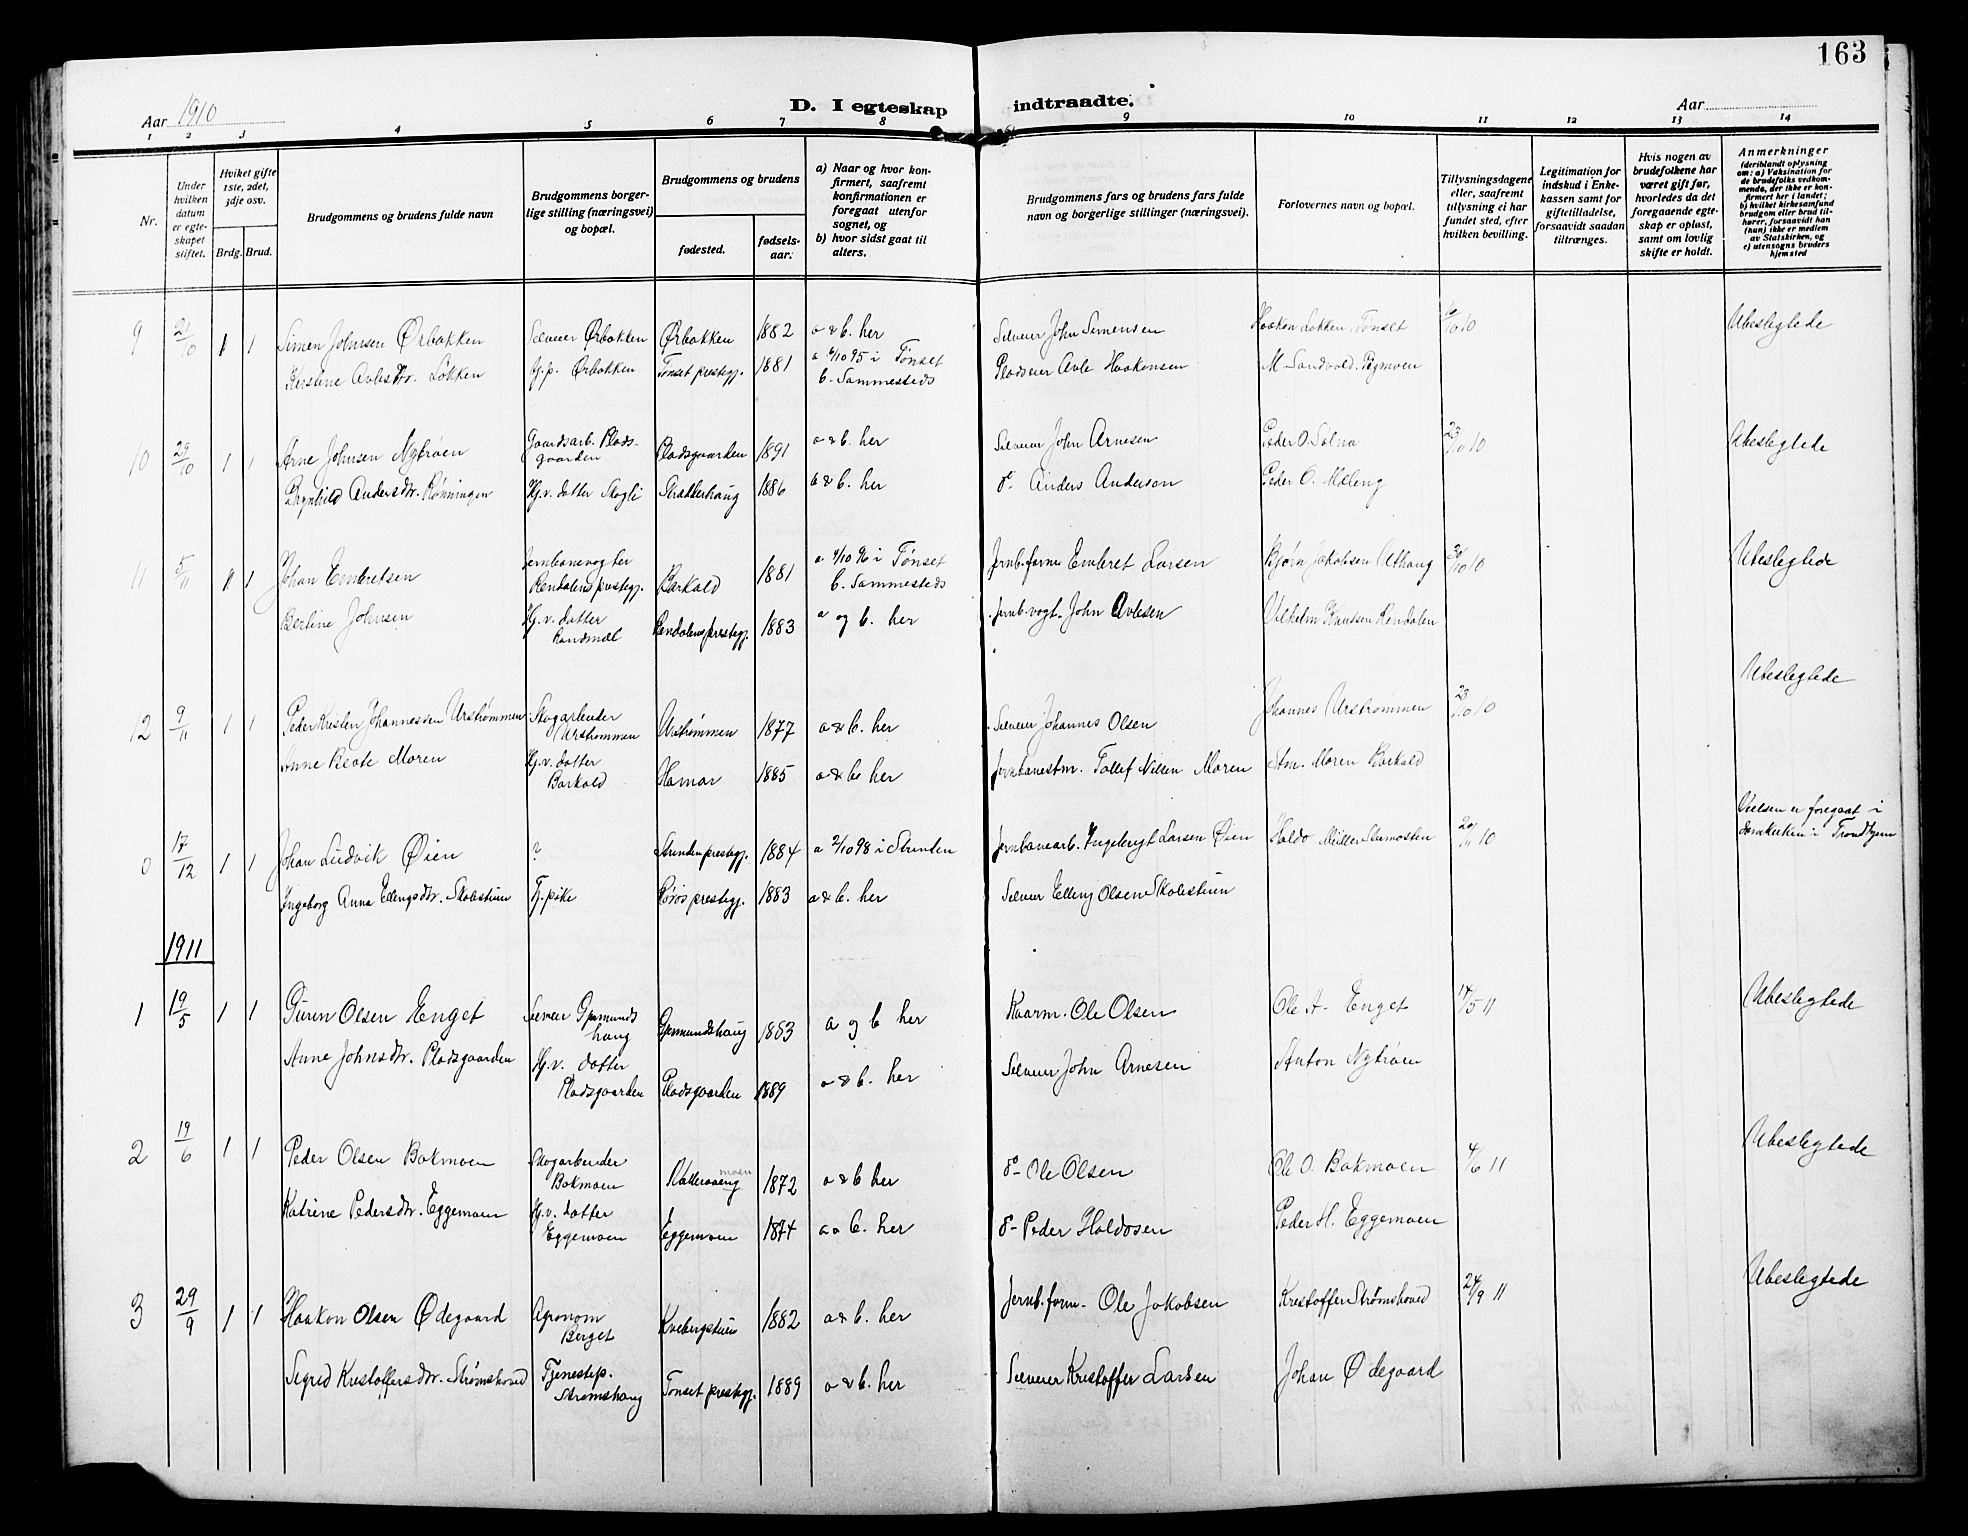 163
Aar 1910
D. I egteskap indtraadte.
Aar
1 2 3 4 5 6 7 8 9 10 11 12 13 14
Nr.
Under hvilken datum er egteskapet stiftet.
Hviket gifte 1ste, 2det, 3dje osv.
Brdg. Brud.
Brudgommens og brudens fulde navn
Brudgommens borgerlige stilling (næringsvei) og bopæl.
Brudgommens og brudens
fødested.
fødselsaar.
a) Naar og hvor konfirmert, saafremt konfirmationen er foregaat utenfor sognet, og
b) hvor sidst gaat til alters.
Brudgommens fars og brudens fars fulde navn og borgerlige stillinger (næringsvei).
Forlovernes navn og bopæl.
Tillysningsdagene eller, saafremt tillysning ei har fundet sted, efter hvilken bevilling.
Legitimation for indskud i Enkekassen samt for giftetilladelse, forsaavidt saadan tiltrænges.
Hvis nogen av brudefolkene har været gift før, hvorledes da det foregaaende egteskap er opløst, samt om lovlig skifte er holdt.
Anmerkninger
(deriblandt oplysning om: a) Vaksination for de brudefolks vedkommende, der ikke er konfirmert her i landet; b) hvilket kirkesamfund brudgom eller brud tilhører, forsaavidt han (hun) ikke er medlem av Statskirken, og c) utensogns bruders hjemsted
9 21/10 1 1 Simen Johnsen Ørbakken Selveier Ørbakken Ørbakken 1882 a & b. her Selveier John Simensen Haaken Løkken, Tønset 16/10 10 Ubeslegtede
Kerstine Avlesdtr. Løkken Tj.p. Ørbakken Tønset prestegj. 1881 a 6/10 95 i Tønset b. Sammesteds Pladseier Avle Haakensen M. Sandvold
10 29/10 1 1 Arne Johnsen Nytrøen Gaardsarb. Pladsgaarden Pladsgaarden 1891 a & b. her Selveier John Arnesen Peder O. 23/10 10 Ubeslegtede
Brynhild Andersdtr. Rønningen Hj.v. datter Skogli 1886 a & b. her do Anders Anderson Peder O. Mæleng
11 5/11 1 1 Johan Embretsen Jernbanevogter Rendalens prestegj. Barkald 1881 a 4/10 96 i Tønset b. Sammesteds Jernb.form Embret Larsen Bjørn Jakobsen 30/10 10 Ubeslegtede
Berline Johnsen Hj.v. datter Rendalens prestegj. 1883 a og b. her Jernb.vogt. John Avlesen Vilhelm Knutsen Rendalen
12 9/11 1 1 Peder Kristen Johannessen Urstrømmen Skogarbeider Urstrømmen Urstrømmen 1877 a & b. her Selveier Johannes Olsen Johannes Urstrømmen 23/10 10 Ubeslegtede
Anne Beate Moren Hj.v. datter Barkald Hamar 1885 a & b. her Jernbanestm. Tollef Nilsen Moren Stm. Moren Barkald
0 17/12 1 1 Johan Ludvik Øien ? Strinden prestegj. 1884 a 2/10 98 i Strinden Jernbanearb. Ingebrigt Larsen Øien Haldo Müller 20/11 10 Vielsen er foregaat i domkirken i Trondhjem
Ingeborg Anna Ellingsdtr. Skolestuen Tj.pike Røros prestegj. 1883 a & b. her Selveier Elling Olsen Skolestuen
1911
1 19/5 1 1 Guren Olsen Enget Selveier Gjermundshaug Gjermundshaug 1883 a og b her Kaarm. Ole Olsen Ole H. Enget 14/5 11 Ubeslegtede
Anne Johnsdtr. Pladsgaarden Hj.v. datter Pladsgaarden Pladsgaarden 1889 a & b. her Selveier John Arnesen Anton Nytrøen
2 19/6 1 1 Peder Olsen Bakmoen Skogarbeider Bakmoen 1872 a & b her do- Ole Olsen Ole O. Bakmoen 4/6 11 Ubeslegtede
Katrine Pedersdtr. Eggemoen Hj.v. datter Eggemoen Eggemoen 1874 a & b. her do- Peder Haldosen Peder H. Eggemoen
3 29/9 1 1 Haakon Olsen Ødegaard Agronom Berget Kvebergstuen 1882 a & b. her Jernb.form. Ole Jakobsen Kristoffer Strømshoved 24/9 11 Ubeslegtede
Sigrid Kristoffersdtr. Strømshoved Tjenestep. Strømshaug Tønset prestegj. 1889 a & b. her Selveier Kristoffer Larsen Johan Ødegaard